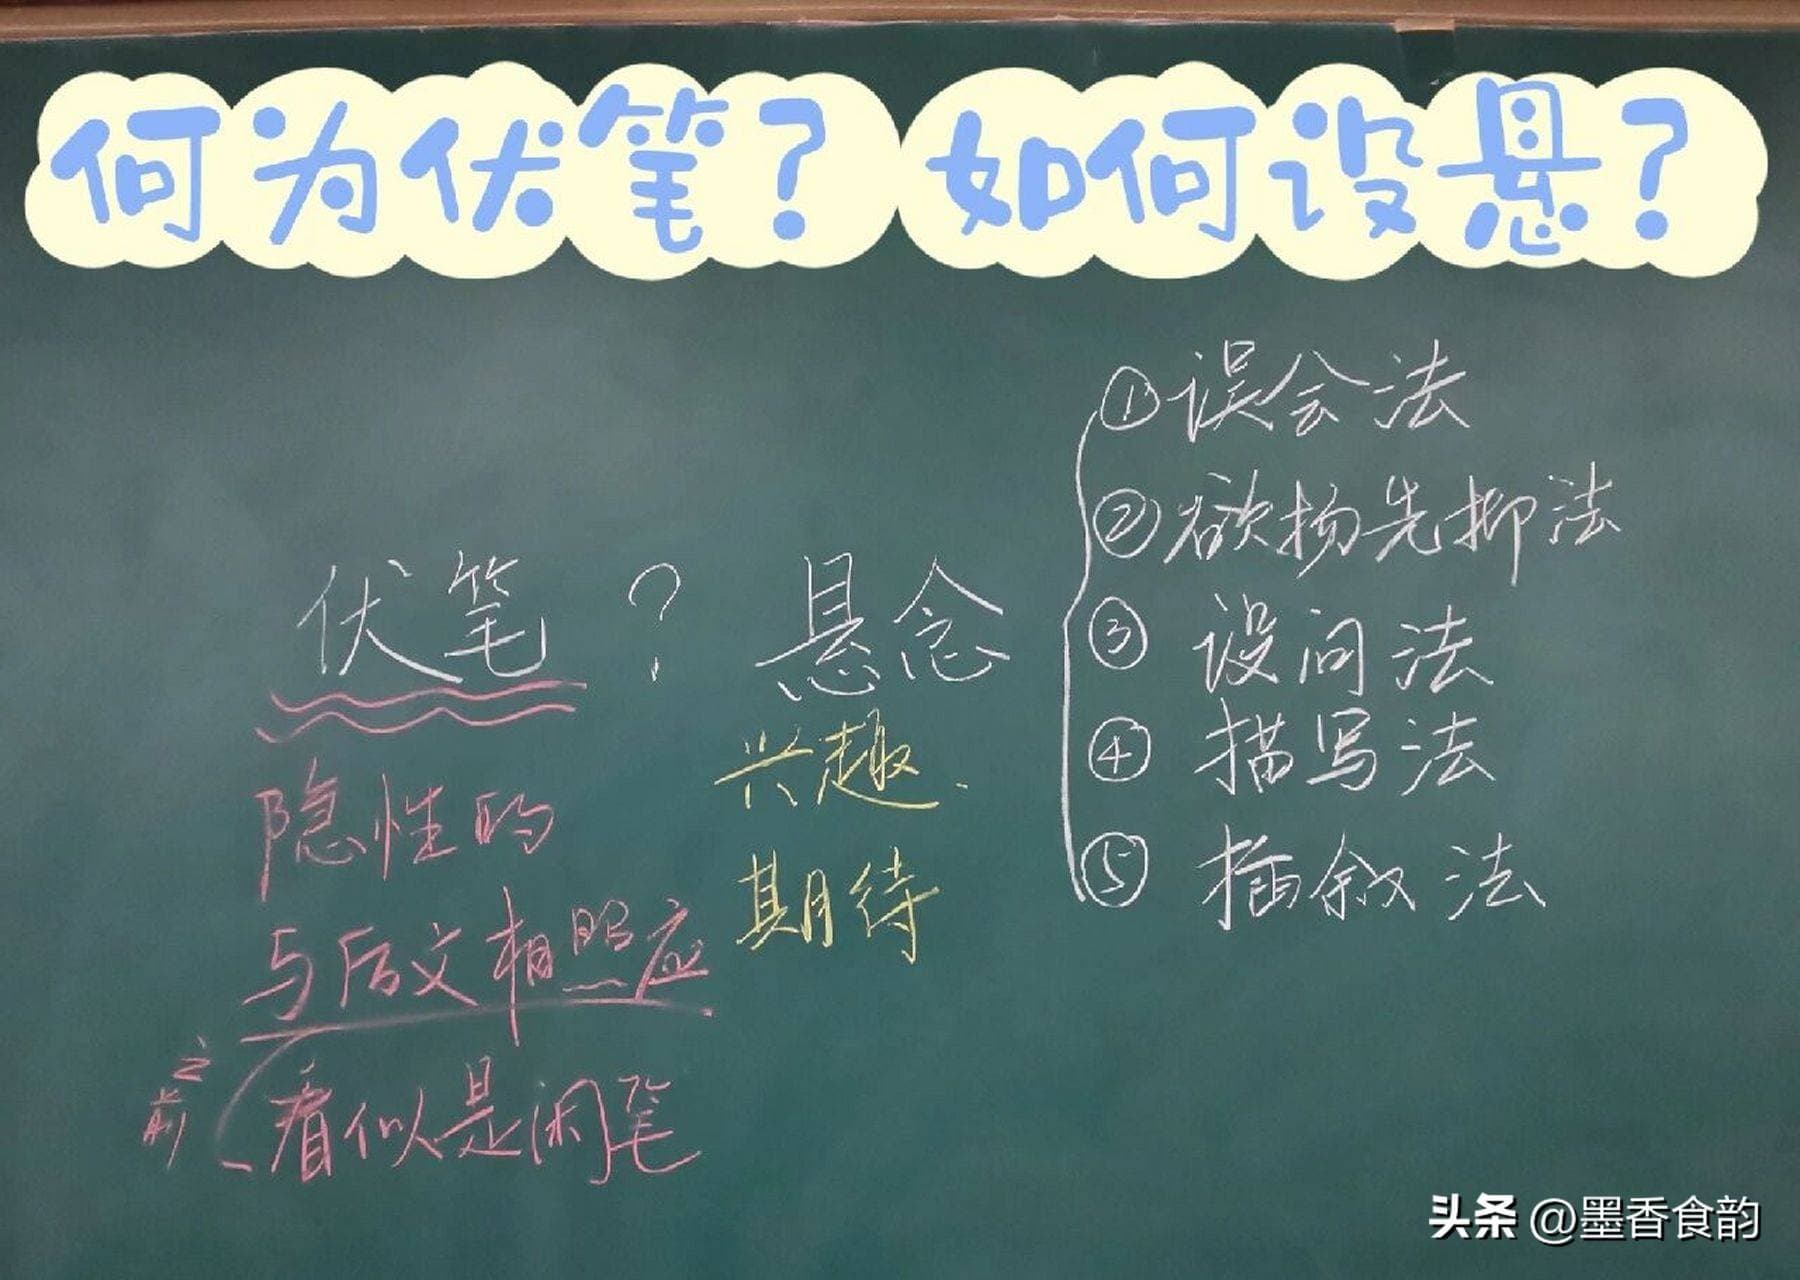 何为伏笔？如何设悬？
伏笔？悬念
隐性的
与后文相照应
之前
看似是闲笔
兴趣.
期待
①误会法
②欲扬先抑法
③设问法
④描写法
⑤插叙法
头条 @墨香食韵